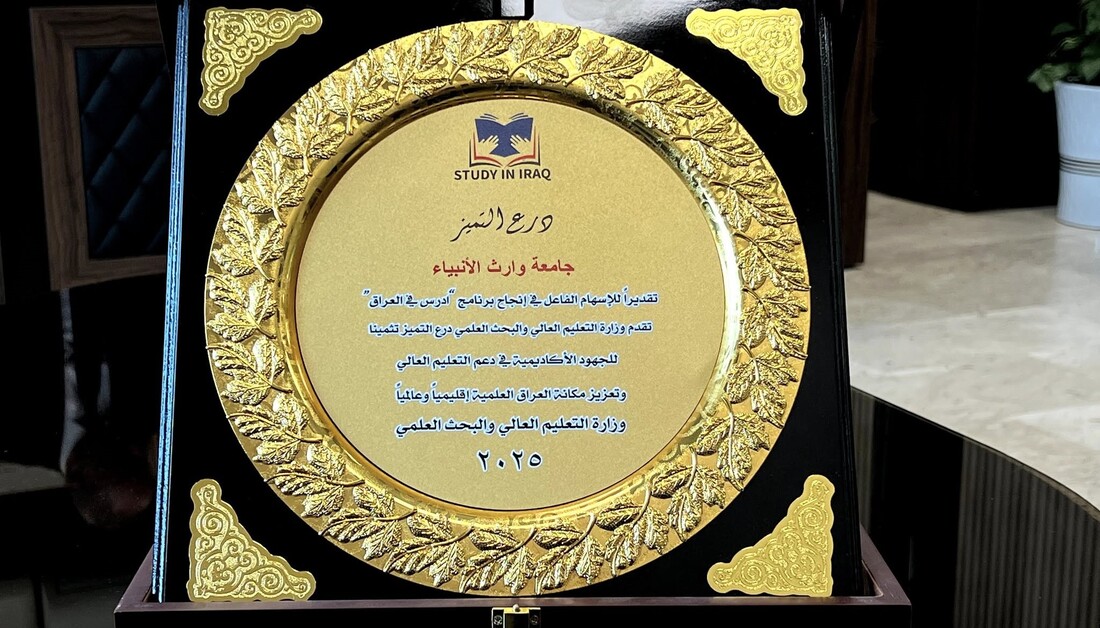 STUDY IN IRAQ
درع التميز
جامعة وارث الأنبياء
تقديراً للإسهام الفاعل في إنجاح برنامج "ادرس في العراق"
تقدم وزارة التعليم العالي والبحث العلمي درع التميز تثمينا
للجهود الأكاديمية في دعم التعليم العالي
وتعزيز مكانة العراق العلمية إقليمياً وعالمياً
وزارة التعليم العالي والبحث العلمي
٢٠٢٥